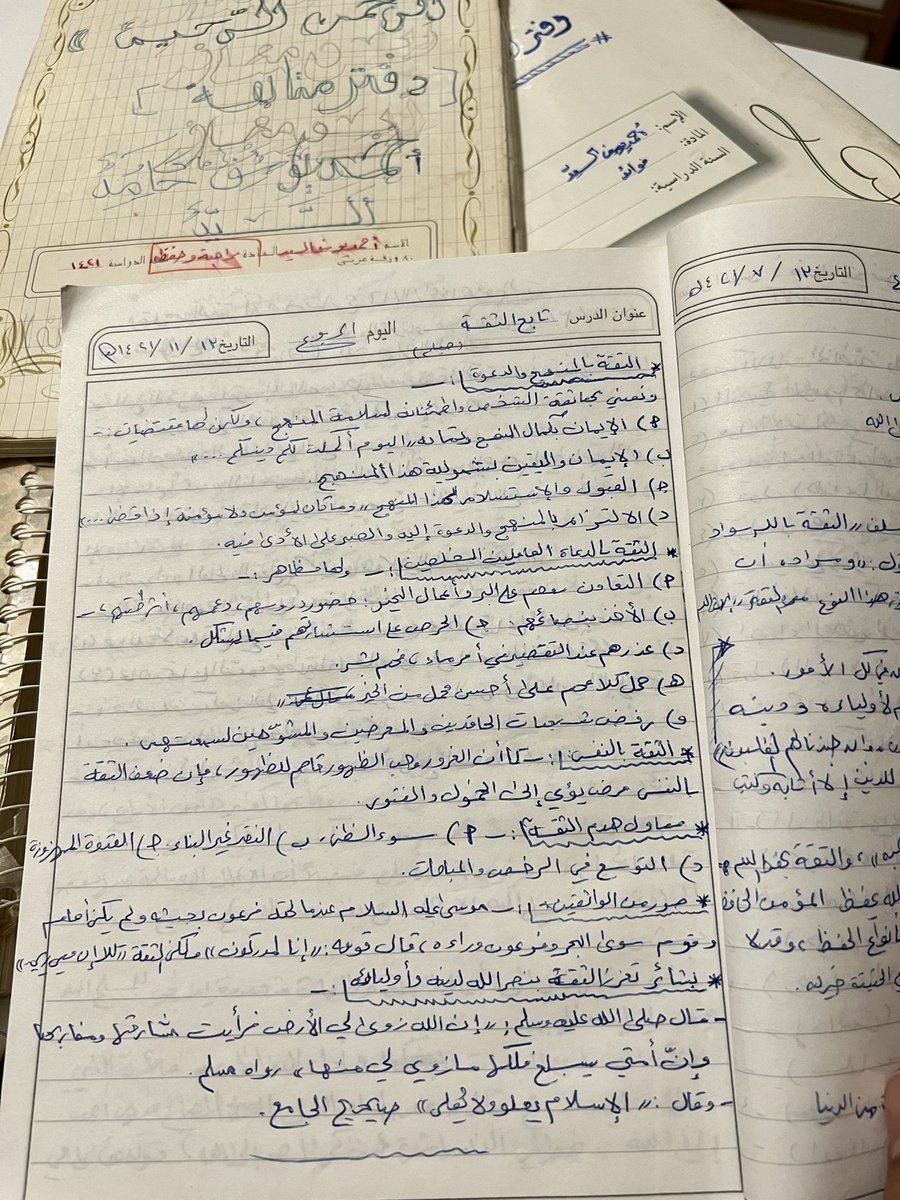 الرحمن الرحيم
[دفتر متابعة]
أحمد يوسف حامد
السيد
الاسم أحمد يوسف السيد المادة مراجعة وحفظ الدراسية ١٤٢١
٨٠ ورقة عربي
دفتر
الاسم: أحمد يوسف السيد
المادة: فوائد
السنة الدراسية:
عنوان الدرس تابع الثقة اليوم التاريخ ١٢ / ١١ / ١٤٢١هـ
* الثقة بالمنهج والدعوة :-
ونعني بها ثقة الشخص واطمئنانه لسلامة المنهج، ولكن لها مقتضيات :-
أ) الإيمان بكمال النهج وتمامه "اليوم أكملت لكم دينكم ..."
ب) الإيمان واليقين بشمولية هذا المنهج.
ج) القبول والاستسلام لهذا المنهج "وما كان لمؤمن ولا مؤمنة إذا قضى ..."
د) الالتزام بالمنهج والدعوة إليه والصبر على الأذى فيه.
* الثقة بالدعاة العاملين المخلصين :- ولها مظاهر :-
أ) التعاون معهم على البر وأعمال الخير: حضور دروسهم، دعمهم، أشرطتهم -
ب) الأخذ بنصائحهم. ج) الحرص على استشارتهم فيما يشكل.
د) عذرهم عند التقصير في أمر ما، فهم بشر.
هـ) حمل كلامهم على أحسن محمل من الخير
و) رفض شبهات الحاقدين والمغرضين والمشوهين لسمعتهم.
* الثقة بالنفس :- كما أن الغرور وحب الظهور قاصم للظهور، فإن ضعف الثقة
بالنفس مرض يؤدي إلى الخمول والفتور.
* معاول هدم الثقة :- أ) سوء الظن، ب) النقد غير البناء ج) الفتوة
د) التوسع في الرخص والمباحات.
* صور من الواثقين :- موسى عليه السلام عندما لحقه فرعون بجيشه ولم يكن أمامهم
وقومه سوى البحر وفرعون وراءه، قال قومه: "إنا لمدركون" ولكن الثقة "كلا إن معي ربي"
* بشائر تعزز الثقة بنصر الله لدينه وأوليائه :-
- قال صلى الله عليه وسلم: "إن الله زوى لي الأرض فرأيت مشارقها ومغاربها
وإنّ أمتي سيبلغ ملكها ما زوي لي منها" رواه مسلم.
- وقال: "الإسلام يعلو ولا يُعلى" صحيح الجامع.
التاريخ ١٢ / ٧ / ١٤٢١هـ
الله
الثقة بالله سواد
أن
هذا النوع من الثقة
في كل الأمور.
لأوليائه ودينه
وإن جندنا لهم الغالبون
للدين إلا أثابه وكتب
والثقة بحفظ الله
الله يحفظ المؤمن
أنواع الحفظ، وقد لا
الحقيقة خير له.
من الدنيا